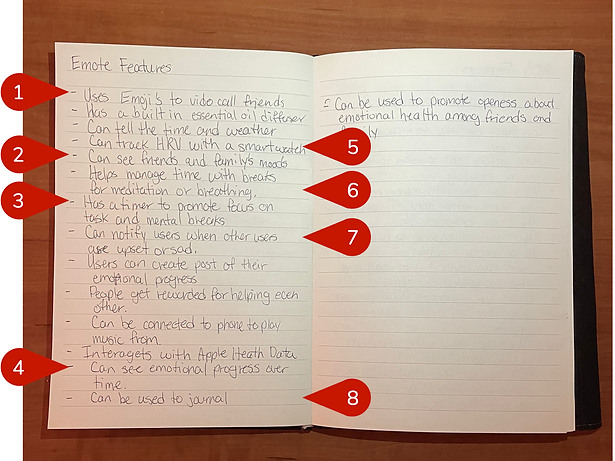 Emote Features
- Uses Emoji's to video call friends
- Has a built in essential oil diffuser
- Can tell the time and weather
- Can track HRV with a smartwatch
- Can see friends and family's moods
- Helps manage time with breaks
for meditation or breathing.
- Has a timer to promote focus on
task and mental breaks
- Can notify users when other users
are upset or sad.
- Users can create post of their
emotional progress
- People get rewarded for helping each
other.
- Can be connected to phone to play
music from
- Interagets with Apple Heath Data
- Can see emotional progress over
time.
- Can be used to journal
- Can be used to promote openess about
emotional health among friends and
family
1
2
3
4
5
6
7
8